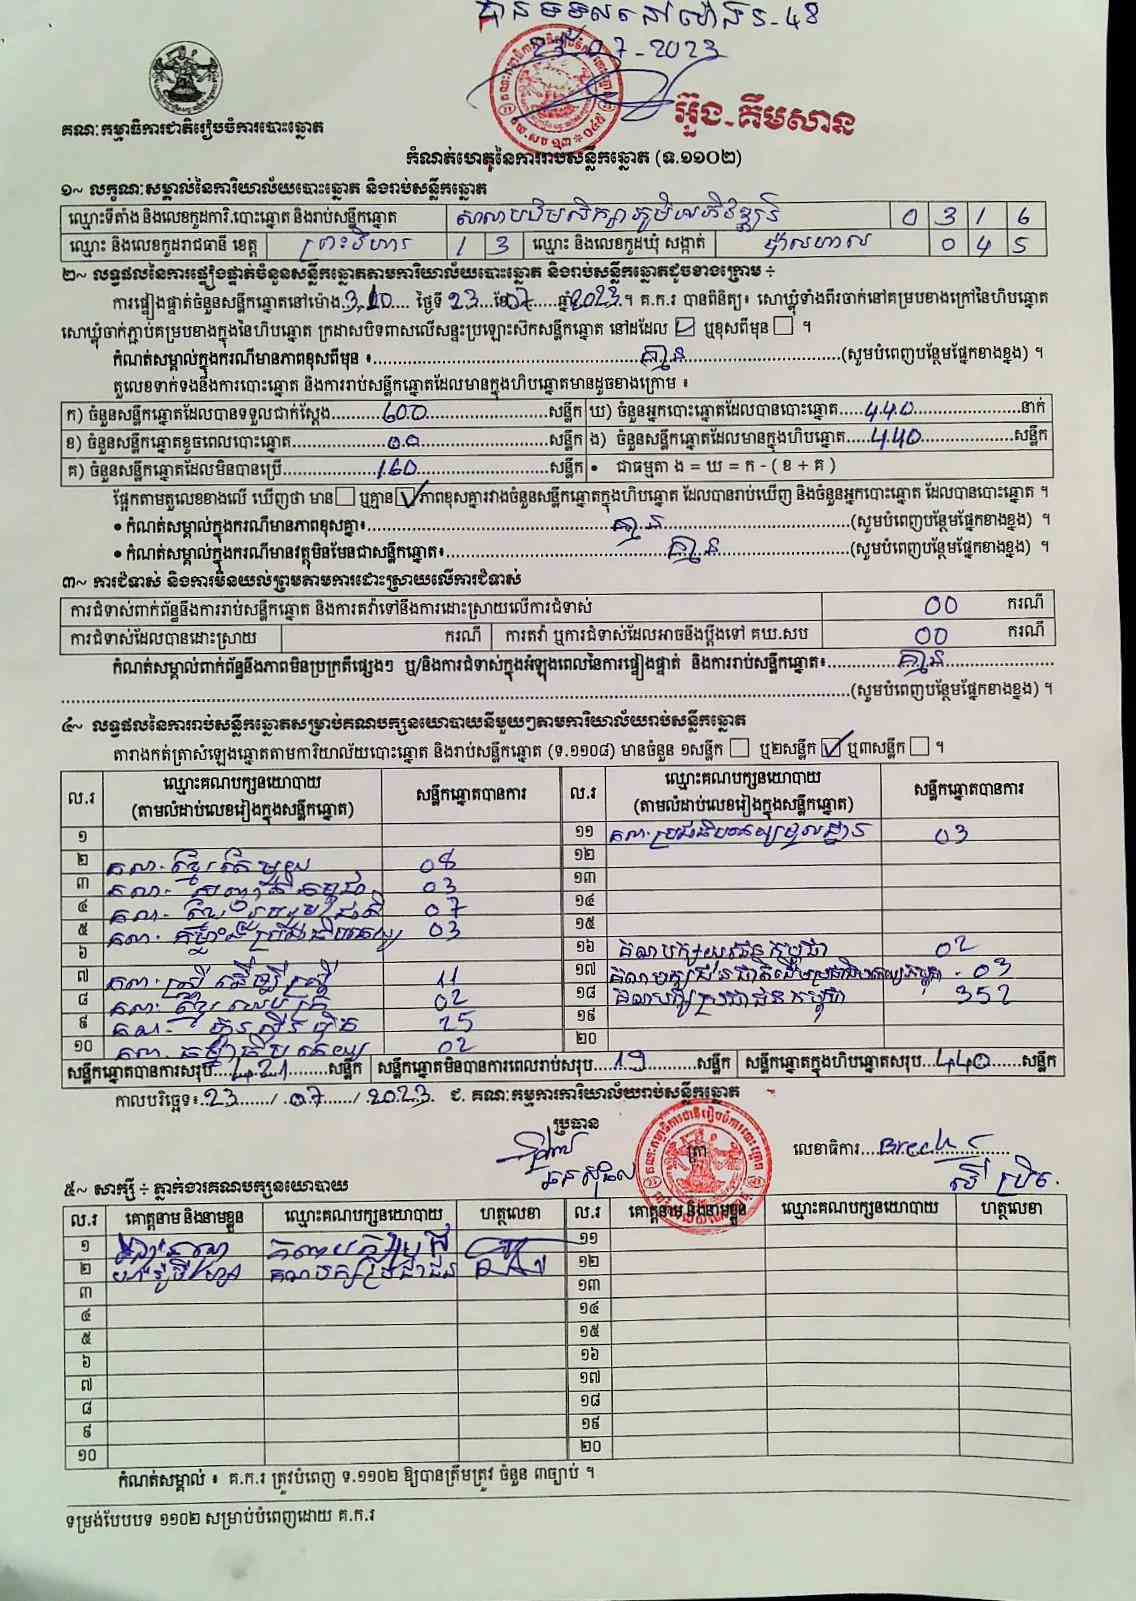 23-07-2023
គណៈកម្មាធិការជាតិរៀបចំការបោះឆ្នោត
អ៊ួង-គឹមសាន
កំណត់ហេតុនៃការរាប់សន្លឹកឆ្នោត (ទ.១១០២)
១~ លក្ខណៈសម្គាល់នៃការិយាល័យបោះឆ្នោត និងរាប់សន្លឹកឆ្នោត
ឈ្មោះទីតាំង និងលេខកូដការិ.បោះឆ្នោត និងរាប់សន្លឹកឆ្នោត 0 3 1 6
ឈ្មោះ និងលេខកូដរាជធានី ខេត្ត ព្រះវិហារ 1 3 ឈ្មោះ និងលេខកូដឃុំ សង្កាត់ 0 4 5
២~ លទ្ធផលនៃការផ្ទៀងផ្ទាត់ចំនួនសន្លឹកឆ្នោតតាមការិយាល័យបោះឆ្នោត និងរាប់សន្លឹកឆ្នោតដូចខាងក្រោម ÷
ការផ្ទៀងផ្ទាត់ចំនួនសន្លឹកឆ្នោតនៅម៉ោង 3:10 ថ្ងៃទី 23 ខែ 07 ឆ្នាំ 2023 ។ គ.ក.រ បានពិនិត្យ៖ សោឃ្លុំទាំងពីរចាក់នៅគម្របខាងក្រៅនៃហិបឆ្នោត
សោឃ្លុំចាក់ភ្ជាប់គម្របខាងក្នុងនៃហិបឆ្នោត ក្រដាសបិទពាសលើសន្ទះប្រឡោះស៊ីកសន្លឹកឆ្នោត នៅដដែល ឬខុសពីមុន ។
កំណត់សម្គាល់ក្នុងករណីមានភាពខុសពីមុន ៖ គ្មាន (សូមបំពេញបន្ថែមផ្នែកខាងខ្នង) ។
តួលេខទាក់ទងនឹងការបោះឆ្នោត និងការរាប់សន្លឹកឆ្នោតដែលមានក្នុងហិបឆ្នោតមានដូចខាងក្រោម ៖
ក) ចំនួនសន្លឹកឆ្នោតដែលបានទទួលជាក់ស្តែង 600 សន្លឹក ឃ) ចំនួនអ្នកបោះឆ្នោតដែលបានបោះឆ្នោត 440 នាក់
ខ) ចំនួនសន្លឹកឆ្នោតខូចពេលបោះឆ្នោត 00 សន្លឹក ង) ចំនួនសន្លឹកឆ្នោតដែលមានក្នុងហិបឆ្នោត 440 សន្លឹក
គ) ចំនួនសន្លឹកឆ្នោតដែលមិនបានប្រើ 160 សន្លឹក • ជាធម្មតា ង = ឃ = ក - ( ខ + គ )
ផ្អែកតាមតួលេខខាងលើ ឃើញថា មាន ឬគ្មាន ភាពខុសគ្នារវាងចំនួនសន្លឹកឆ្នោតក្នុងហិបឆ្នោត ដែលបានរាប់ឃើញ និងចំនួនអ្នកបោះឆ្នោត ដែលបានបោះឆ្នោត ។
• កំណត់សម្គាល់ក្នុងករណីមានភាពខុសគ្នា៖ គ្មាន (សូមបំពេញបន្ថែមផ្នែកខាងខ្នង) ។
• កំណត់សម្គាល់ក្នុងករណីមានវត្ថុមិនមែនជាសន្លឹកឆ្នោត៖ គ្មាន (សូមបំពេញបន្ថែមផ្នែកខាងខ្នង) ។
៣~ ការជំទាស់ និងការមិនយល់ព្រមតាមការដោះស្រាយលើការជំទាស់
ការជំទាស់ពាក់ព័ន្ធនឹងការរាប់សន្លឹកឆ្នោត និងការតវ៉ាទៅនឹងការដោះស្រាយលើការជំទាស់ 00 ករណី
ការជំទាស់ដែលបានដោះស្រាយ ករណី ការតវ៉ា ឬការជំទាស់ដែលអាចនឹងប្តឹងទៅ គឃ.សប 00 ករណី
កំណត់សម្គាល់ពាក់ព័ន្ធនឹងភាពមិនប្រក្រតីផ្សេងៗ ឬ/និងការជំទាស់ក្នុងអំឡុងពេលនៃការផ្ទៀងផ្ទាត់ និងការរាប់សន្លឹកឆ្នោត៖ គ្មាន
(សូមបំពេញបន្ថែមផ្នែកខាងខ្នង) ។
៤~ លទ្ធផលនៃការរាប់សន្លឹកឆ្នោតសម្រាប់គណបក្សនយោបាយនីមួយៗតាមការិយាល័យរាប់សន្លឹកឆ្នោត
តារាងកត់ត្រាសំឡេងឆ្នោតតាមការិយាល័យបោះឆ្នោត និងរាប់សន្លឹកឆ្នោត (ទ.១១០៨) មានចំនួន ១សន្លឹក ឬ២សន្លឹក ឬ៣សន្លឹក ។
ល.រ ឈ្មោះគណបក្សនយោបាយ (តាមលំដាប់លេខរៀងក្នុងសន្លឹកឆ្នោត) សន្លឹកឆ្នោតបានការ ល.រ ឈ្មោះគណបក្សនយោបាយ (តាមលំដាប់លេខរៀងក្នុងសន្លឹកឆ្នោត) សន្លឹកឆ្នោតបានការ
១ ១១ គណៈប្រជាធិបតេយ្យមូលដ្ឋាន 03
២ គណៈខ្មែរតែមួយ 08 ១២
៣ 03 ១៣
៤ 07 ១៤
៥ 03 ១៥
៦ ១៦ គណបក្សយុវជនកម្ពុជា 02
៧ 11 ១៧ 03
៨ 02 ១៨ គណបក្សប្រជាជនកម្ពុជា 352
៩ 25 ១៩
១០ 02 ២០
សន្លឹកឆ្នោតបានការសរុប 421 សន្លឹក សន្លឹកឆ្នោតមិនបានការពេលរាប់សរុប 19 សន្លឹក សន្លឹកឆ្នោតក្នុងហិបឆ្នោតសរុប 440 សន្លឹក
កាលបរិច្ឆេទ៖ 23 / 07 / 2023. ជ. គណៈកម្មការការិយាល័យរាប់សន្លឹកឆ្នោត
ប្រធាន
លេខាធិការ Brech
៥~ សាក្សី ÷ ភ្នាក់ងារគណបក្សនយោបាយ
ល.រ គោត្តនាម និងនាមខ្លួន ឈ្មោះគណបក្សនយោបាយ ហត្ថលេខា ល.រ គោត្តនាម និងនាមខ្លួន ឈ្មោះគណបក្សនយោបាយ ហត្ថលេខា
១ ១១
២ គណបក្សប្រជាជន ១២
៣ ១៣
៤ ១៤
៥ ១៥
៦ ១៦
៧ ១៧
៨ ១៨
៩ ១៩
១០ ២០
កំណត់សម្គាល់ ៖ គ.ក.រ ត្រូវបំពេញ ទ.១១០២ ឱ្យបានត្រឹមត្រូវ ចំនួន ៣ច្បាប់ ។
ទម្រង់បែបបទ ១១០២ សម្រាប់បំពេញដោយ គ.ក.រ